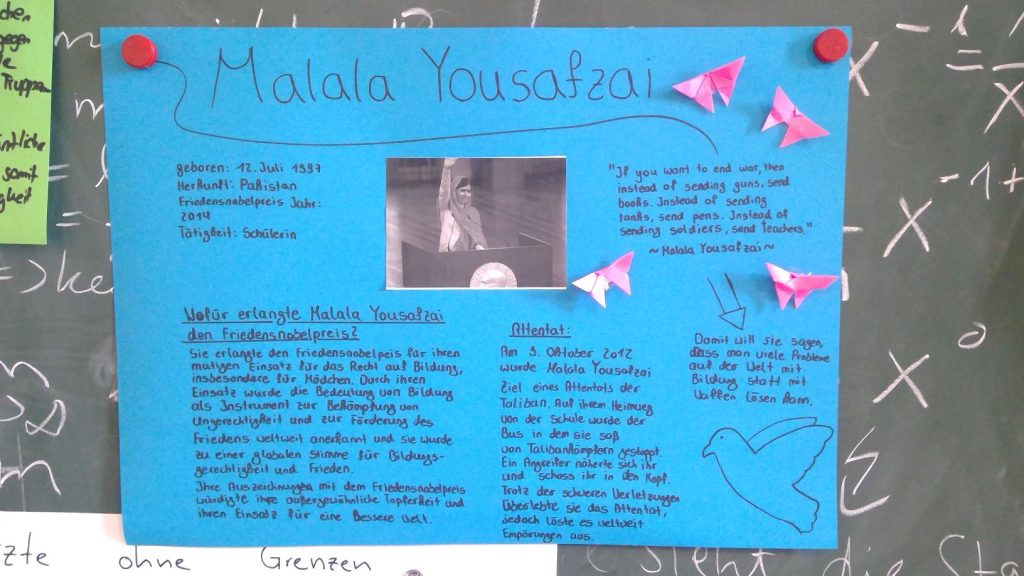 Malala Yousafzai
geboren: 12. Juli 1997
Herkunft: Pakistan
Friedensnobelpreis Jahr:
2014
Tätigkeit: Schülerin
"If you want to end war, then
instead of sending guns, send
books. Instead of sending
tanks, send pens. Instead of
sending soldiers, send teachers."
~ Malala Yousafzai ~
Damit will sie sagen,
dass man viele Probleme
auf der Welt mit
Bildung statt mit
Waffen lösen kann.
Wofür erlangte Malala Yousafzai
den Friedensnobelpreis?
Sie erlangte den Friedensnobelpeis für ihren
mutigen Einsatz für das Recht auf Bildung,
insbesondere für Mädchen. Durch ihren
Einsatz wurde die Bedeutung von Bildung
als Instrument zur Bekämpfung von
Ungerechtigkeit und zur Förderung des
Friedens weltweit anerkannt und sie wurde
zu einer globalen Stimme für Bildungs-
gerechtigkeit und Frieden.
Ihre Auszeichnungen mit dem Friedensnobelpreis
würdigte ihre außergewöhnliche Tapferkeit und
ihren Einsatz für eine Bessere Welt.
Attentat:
Am 9. Oktober 2012
wurde Malala Yousafzai
Ziel eines Attentats der
Taliban. Auf ihrem Heimweg
von der Schule wurde der
Bus in dem sie saß
von Talibankämpfern gestoppt.
Ein Angreifer näherte sich ihr
und schoss ihr in den Kopf.
Trotz der schweren Verletzungen
überlebte sie das Attentat,
jedoch löste es weltweit
Empörungen aus.
chen
gegen
Truppen
samt
igkeit
zte ohne Grenzen
=> kei
-1
=
X
-1+
X
X
sieht die Sta